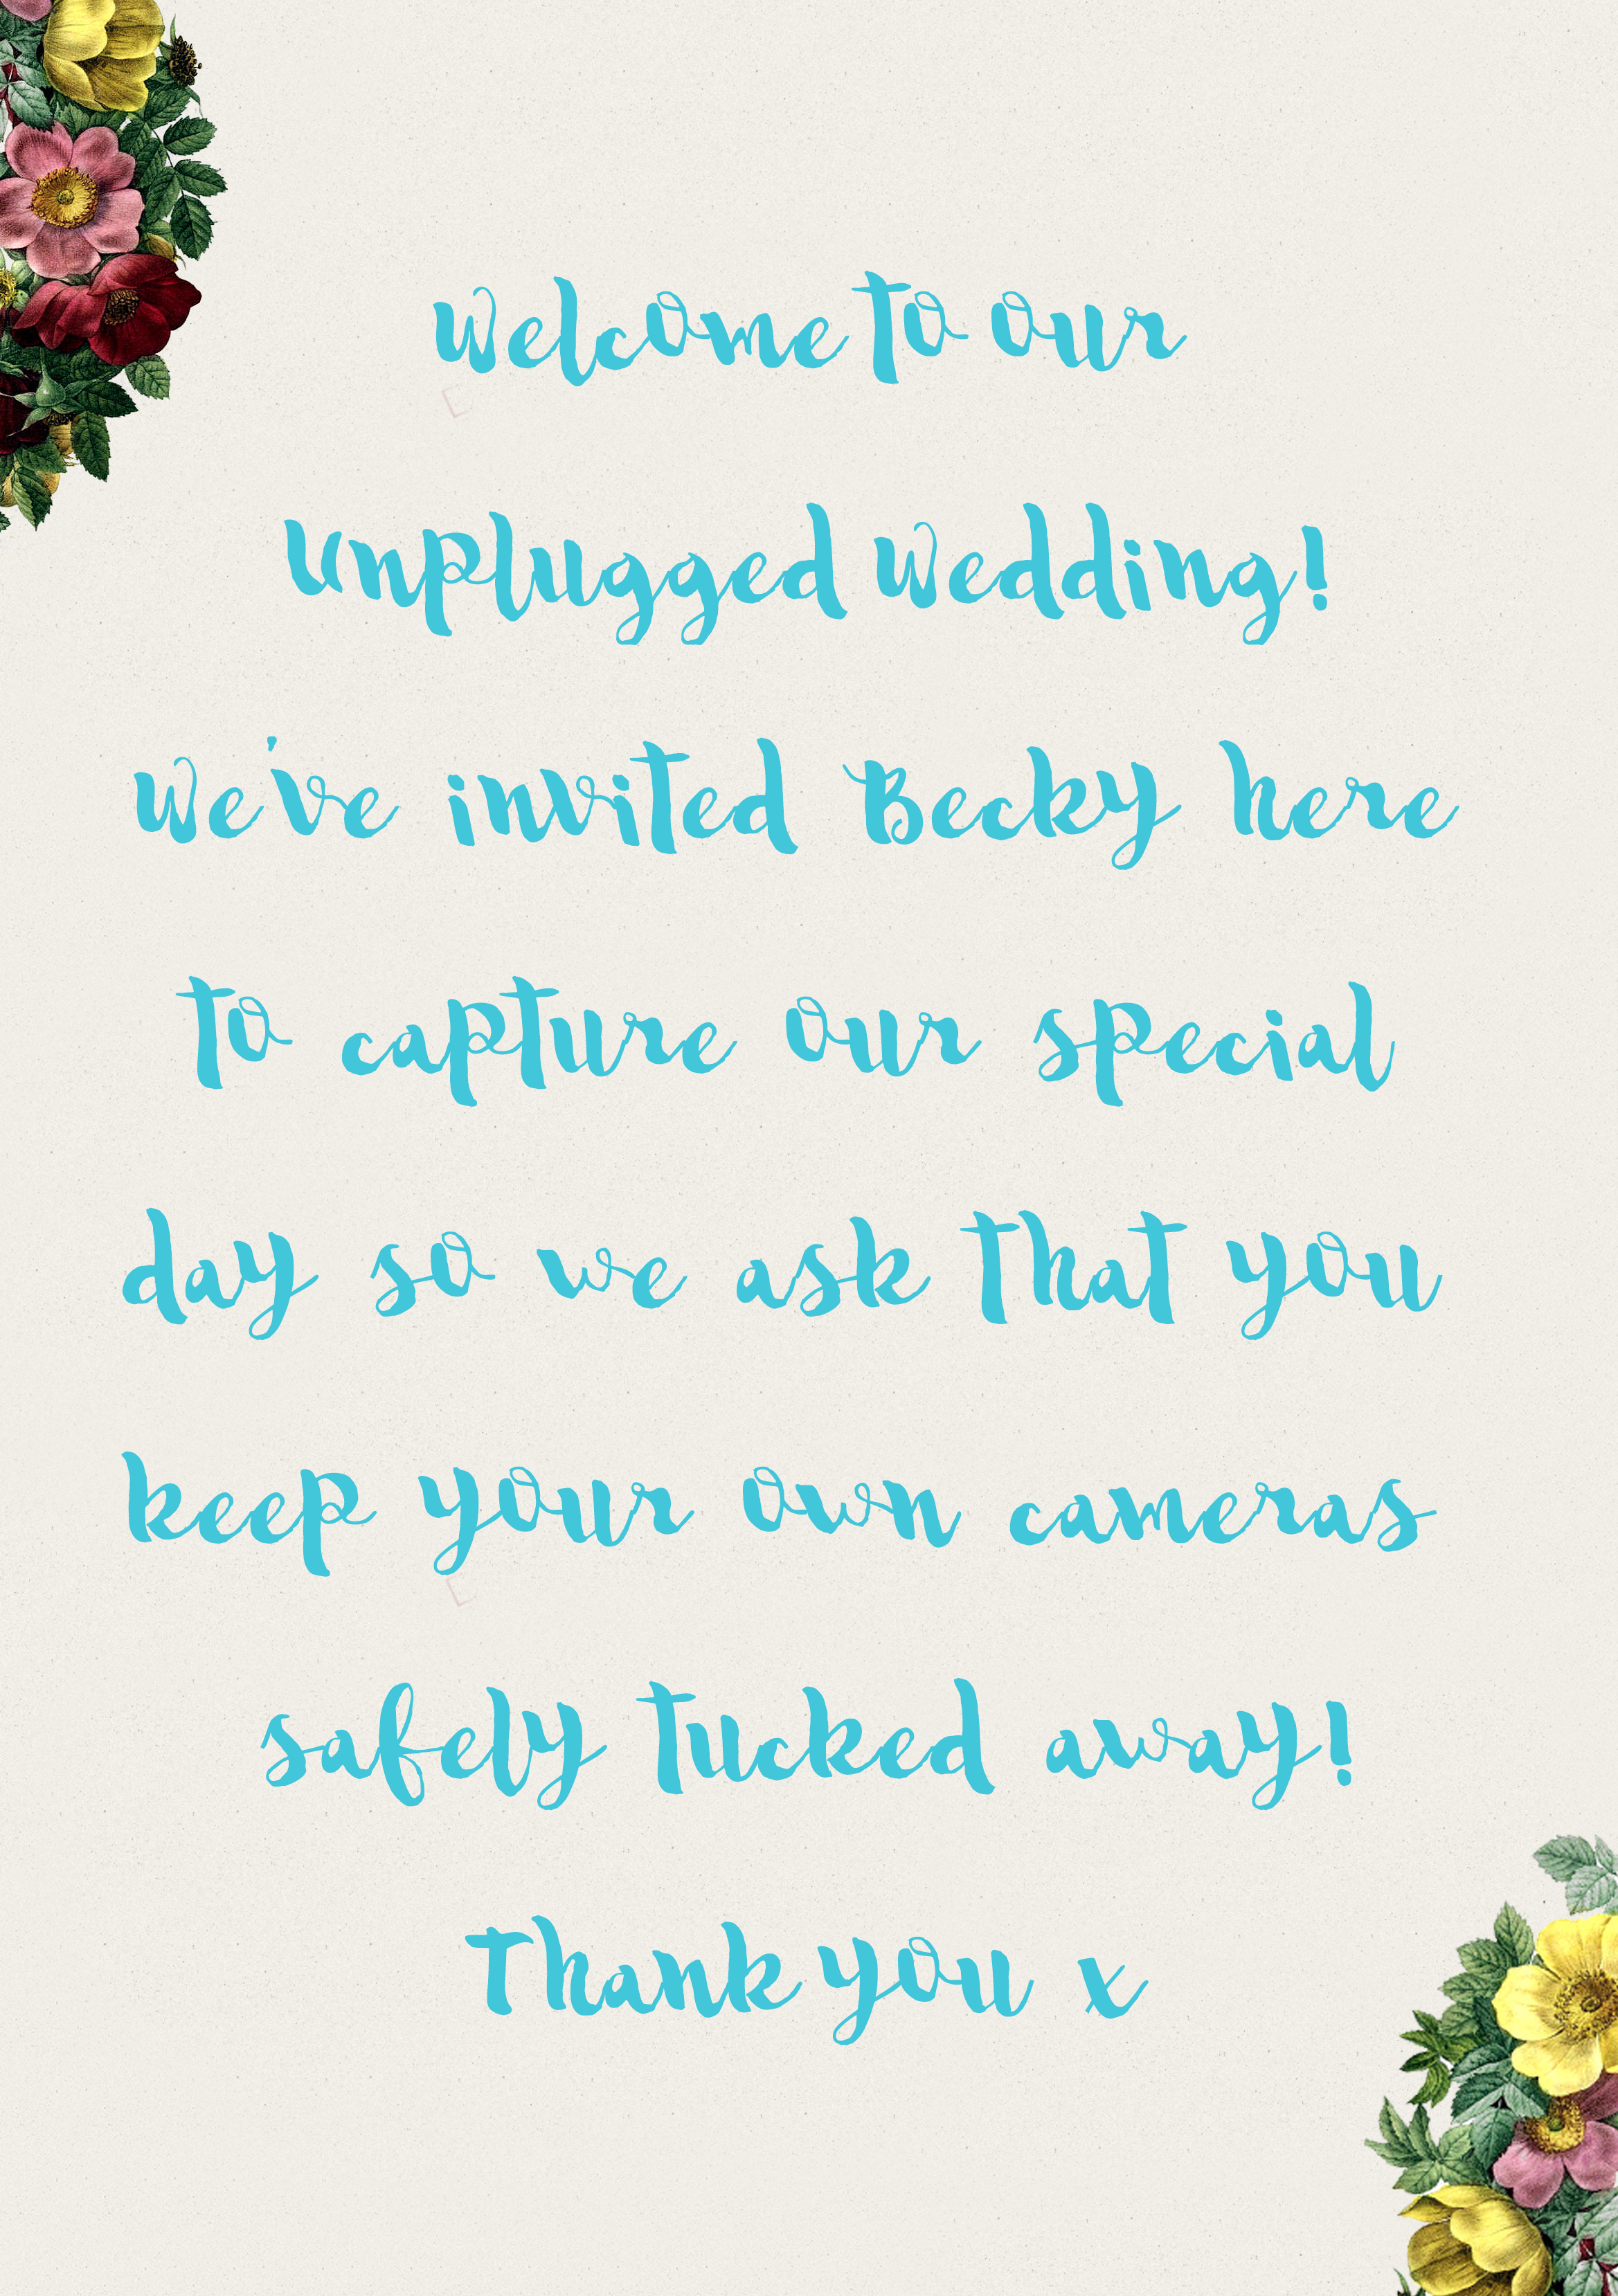 Welcome to our
Unplugged Wedding!
We've invited Becky here
to capture our special
day so we ask that you
keep your own cameras
safely tucked away!
Thank you x